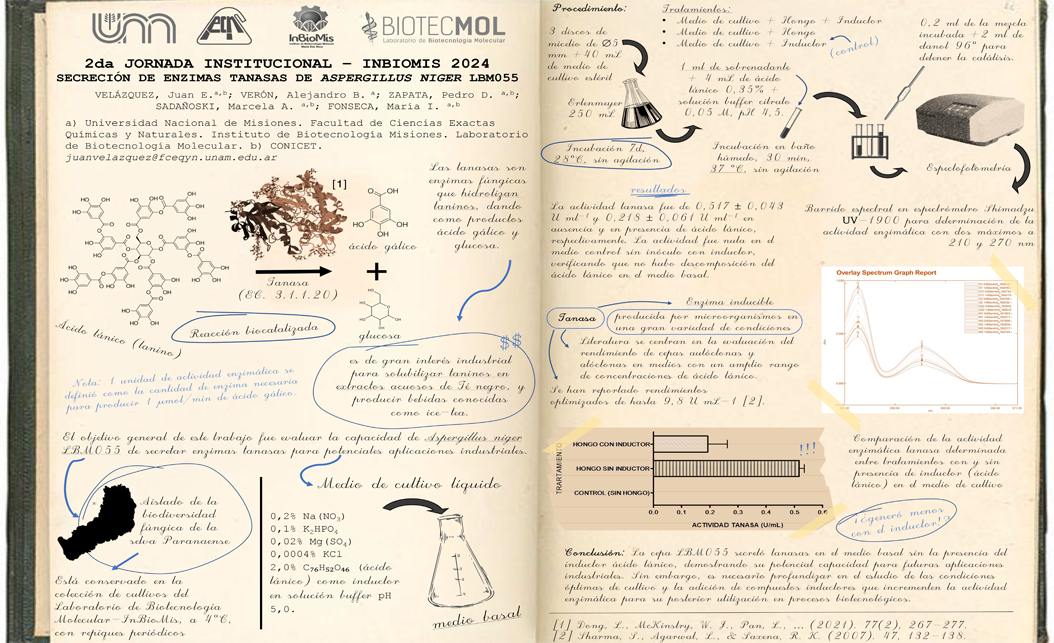 InBioMis
BIOTECMOL
Laboratorio de Biotecnología Molecular
2da JORNADA INSTITUCIONAL – INBIOMIS 2024
SECRECIÓN DE ENZIMAS TANASAS DE ASPERGILLUS NIGER LBM055
VELÁZQUEZ, Juan E.a,b; VERÓN, Alejandro B. a; ZAPATA, Pedro D. a,b;
SADAÑOSKI, Marcela A. a,b; FONSECA, María I. a,b
a) Universidad Nacional de Misiones. Facultad de Ciencias Exactas
Químicas y Naturales. Instituto de Biotecnología Misiones. Laboratorio
de Biotecnología Molecular. b) CONICET.
juanvelazquez@fceqyn.unam.edu.ar
[1]
ácido gálico
Tanasa
(EC. 3.1.1.20)
+
glucosa
Acido tánico (tanino)
Reacción biocatalizada
Las tanasas son
enzimas fúngicas
que hidrolizan
taninos, dando
como productos
ácido gálico y
glucosa.
$$
es de gran interés industrial
para solubilizar taninos en
extractos acuosos de Té negro, y
producir bebidas conocidas
como ice-tea.
Nota: 1 unidad de actividad enzimática se
definió como la cantidad de enzima necesaria
para producir 1 µmol/min de ácido gálico.
El objetivo general de este trabajo fue evaluar la capacidad de Aspergillus niger
LBM055 de secretar enzimas tanasas para potenciales aplicaciones industriales.
Aislado de la
biodiversidad
fúngica de la
selva Paranaense
Está conservado en la
colección de cultivos del
Laboratorio de Biotecnología
Molecular-InBioMis, a 4°C,
con repiques periódicos
Medio de cultivo líquido
0,2% Na(NO3)
0,1% K2HPO4
0,02% Mg(SO4)
0,0004% KCl
2,0% C76H52O46 (ácido
tánico) como inductor
en solución buffer pH
5,0.
medio basal
Procedimiento:
3 discos de
micelio de Ø5
mm +40 mL
de medio de
cultivo estéril
Erlenmeyer
250 mL
Incubación 7d,
28°C, sin agitación
Tratamientos:
• Medio de cultivo + Hongo + Inductor
• Medio de cultivo + Hongo
• Medio de cultivo + Inductor
(control)
1 ml de sobrenadante
+ 4 mL de ácido
tánico 0,35% +
solución buffer citrato
0,05 M, pH 4,5.
Incubación en baño
húmedo, 30 min,
37 °C, sin agitación
0,2 ml de la mezcla
incubada + 2 ml de
etanol 96° para
detener la catálisis.
Espectofotometría
Barrido espectral en espectrómetro Shimadzu
UV-1900 para determinación de la
actividad enzimática con dos máximos a
210 y 270 nm
resultados
La actividad tanasa fue de 0,517 ± 0,043
U ml-1 y 0,218 ± 0,061 U ml-1 en
ausencia y en presencia de ácido tánico,
respectivamente. La actividad fue nula en el
medio control sin inóculo con inductor,
verificando que no hubo descomposición del
ácido tánico en el medio basal.
Enzima inducible
Tanasa
producida por microorganismos en
una gran variedad de condiciones
Literatura se centran en la evaluación del
rendimiento de cepas autóctonas y
alóctonas en medios con un amplio rango
de concentraciones de ácido tánico.
Se han reportado rendimientos
optimizados de hasta 9,8 U mL-1 [2].
Overlay Spectrum Graph Report
TRARTAMIENTO
HONGO CON INDUCTOR
HONGO SIN INDUCTOR
CONTROL (SIN HONGO)
!!!
0.0 0.1 0.2 0.3 0.4 0.5 0.6
ACTIVIDAD TANASA (U/mL)
Comparación de la actividad
enzimática tanasa determinada
entre tratamientos con y sin
presencia de inductor (ácido
tánico) en el medio de cultivo
¡¿generó menos
con el inductor!?
Conclusión: La cepa LBM055 secretó tanasas en el medio basal sin la presencia del
inductor ácido tánico, demostrando su potencial capacidad para futuras aplicaciones
industriales. Sin embargo, es necesario profundizar en el estudio de las condiciones
óptimas de cultivo y la adición de compuestos inductores que incrementen la actividad
enzimática para su posterior utilización en procesos biotecnológicos.
[1] Dong, L., McKinstry, W. J., Pan, L., ... (2021). 77(2), 267-277.
[2] Sharma, S., Agarwal, L., & Saxena, R. K. (2007). 47, 132-138.